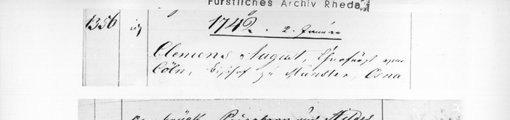 Fürstliches Archiv Rheda
1356
1742. 2. Januar
Clemens August, Churfürst von
Cöln, Bischof zu Münster, Osna
brück, Paderborn und